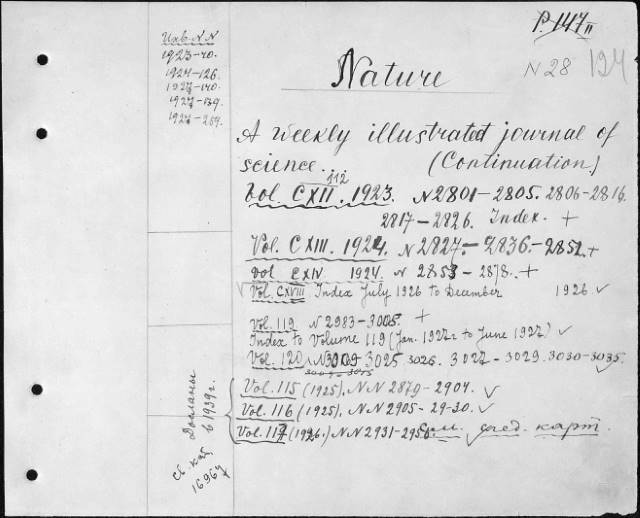 P. 147 II
N 28 124
Инв. N N
1923-70.
1924-126.
1927-140.
1927-139.
1927-257.
Nature
A weekly illustrated journal of
science. (Continuation)
112
Vol. CXII. 1923. N 2801-2805. 2806-2816.
2817-2826. Index. +
Vol. CXIII. 1924. N 2827.- 2836.- 2852 +
Vol CXIV. 1924. N 2853 - 2878. +
V Vol. CXVIII Index July 1926 to December 1926. ✓
Vol. 119 N 2983-3005. +
Index to Volume 119 (Jan. 1927 to June 1927) ✓
Vol. 120 N 3009 3025 3026. 3027 - 3029. 3030-3035. ✓
Vol. 115 (1925), NN 2879-2904. ✓
Vol. 116 (1925), NN 2905-29-30. ✓
Vol. 117 (1926.) NN 2931-2956. см. след. карт.
в 1939 г.
16967